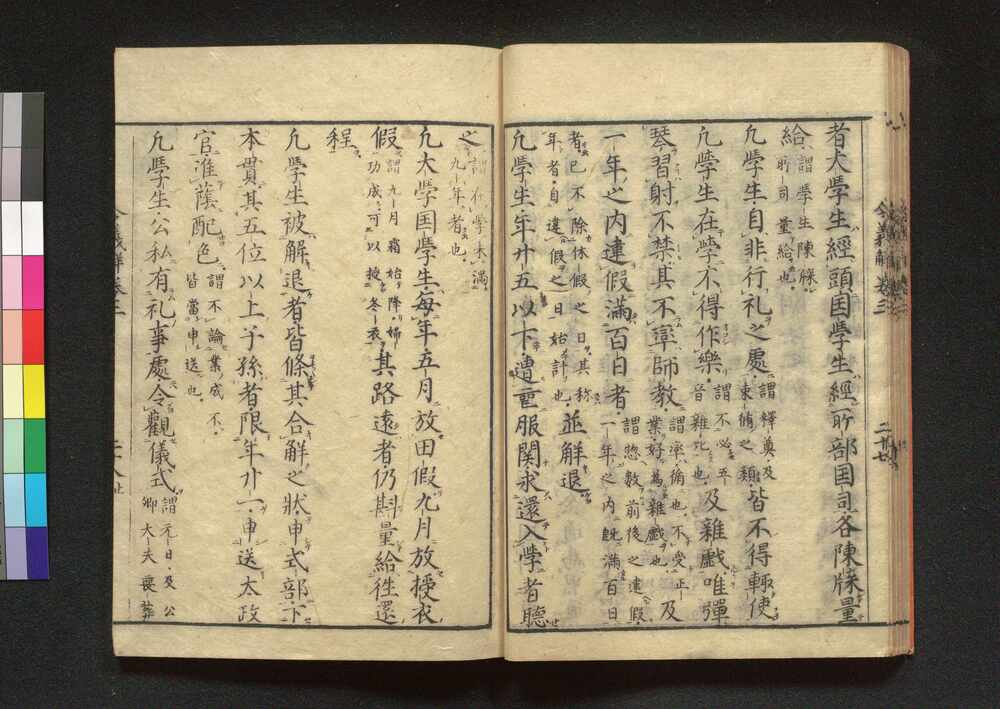 者大學生經頭国學生經所部国司各陳牒量
給謂學生陳牒所司量給也
凡學生自非行礼之處謂釋奠及束脩之類皆不得輙使
凡學生在學不得作樂謂不必五音雜比也及雜戯唯彈
琴習射不禁其不率師教謂率循也不受正業好為雜戯也及
一年之内違假滿百日者謂惣數前後之違假一年之内既滿百日
者已不除休假之日其称年者自違假之日始計也並解退
凡學生年廿五以下遭重服関求還入學者聽
之謂不學未滿九年者也
凡大學国學生每年五月放田假九月放授衣
假謂九月霜始降婦功成可以授冬衣其路遠者仍斟量給往還
程
凡學生被解退者皆條其合解之状申式部下
本貫其五位以上子孫者限年廿一申送太政
官准蔭配色謂不論業成不皆當申送也
凡學生公私有礼事處令觀儀式謂元日及公卿大夫喪葬
令義解卷三